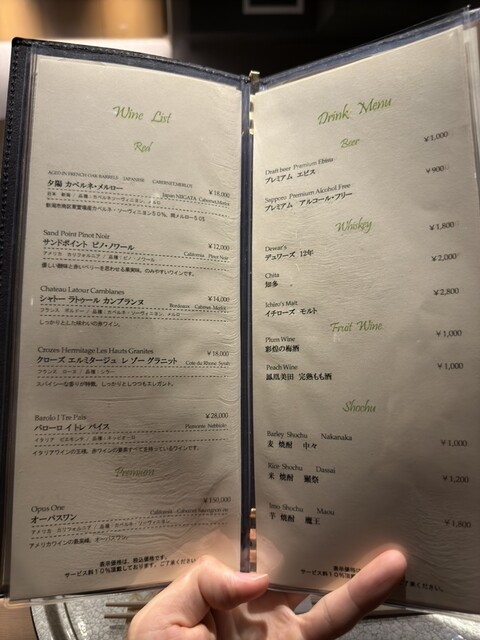 Wine List
Red
AGED IN FRENCH OAK BARRELS JAPANESE CABERNET,MERLOT
夕陽 カベルネ・メルロー ¥18,000
日本 新潟 / 品種：カベルネ・ソーヴィニヨン、メルロー Japan NIIGATA Cabernet,Merlot
Sand Point Pinot Noir
サンドポイント ピノ・ノワール ¥12,000
アメリカ カリフォルニア / 品種：ピノ・ノワール California Pinot Noir
優しい酸味と赤いベリーを思わせる果実味。のみやすいワインです。
Chateau Latour Camblanes
シャトー ラトゥール カンブランヌ ¥14,000
フランス ボルドー / 品種：カベルネ・ソーヴィニヨン、メルロ Bordeaux Cabernet Merlot
しっかりとした味わいの赤ワイン。
Crozes Hermitage Les Hauts Granites
クローズ エルミタージュ レ ゾー グラニット ¥18,000
フランス ローヌ / 品種：シラー Cote du Rhone Syrah
スパイシーな香りが特徴。しっかりとしつつもエレガント。
Barolo I Tre Pais
バローロ イトレ パイス ¥28,000
イタリア ピエモンテ / 品種：ネッビオーロ Piemonte Nebbiolo
イタリアワインの王様。赤ワインの要素すべて主持っているワインです。
Premium
Opus One
オーパスワン ¥150,000
アメリカ カリフォルニア / 品種：カベルネ・ソーヴィニヨン California Cabernet Sauvignon
アメリカワインの最高峰、オーパスワン。
表示価格は、税込価格です。
サービス料10%頂戴しております。ご了承ください。
Drink Menu
Beer
Draft beer Premium Ebisu ¥1,000
プレミアム エビス
Sapporo Premium Alcohol Free ¥900
プレミアム アルコール・フリー
Whiskey
Dewar's ¥1,800
デュワーズ 12年
Chita ¥2,000
知多
Ichiro's Malt ¥2,800
イチローズ モルト
Fruit Wine
Plum Wine ¥1,000
彩煌の梅酒
Peach Wine ¥1,000
鳳凰美田 完熟もも酒
Shochu
Barley Shochu Nakanaka
麦 焼酎 中々 ¥1,000
Rice Shochu Dassai
米 焼酎 獺祭 ¥1,200
Imo Shochu Maou
芋 焼酎 魔王 ¥1,800
表示価格は、税込価格です。
サービス料10%頂戴
ください。